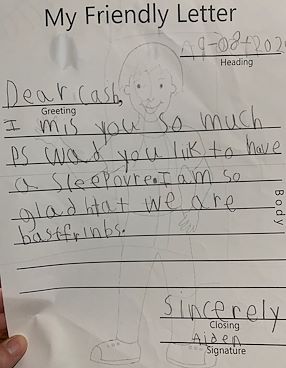 My Friendly Letter
Heading
Dear cash,
Greeting
I mis you so much
ps wad you lik to have
a sleepovre. I am so
glad htat we are
bastfrinbs.
Body
Sincerely
Closing
Aiden
Signature